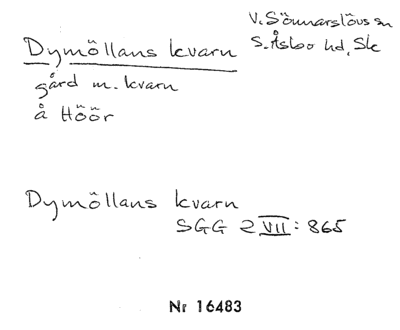 V. Sönnarslövs sn
Dymöllans kvarn S. Åsbo hd, Sk
gård m. kvarn
å Höör
Dymöllans kvarn
SGG 2 VII: 865
Nr 16483